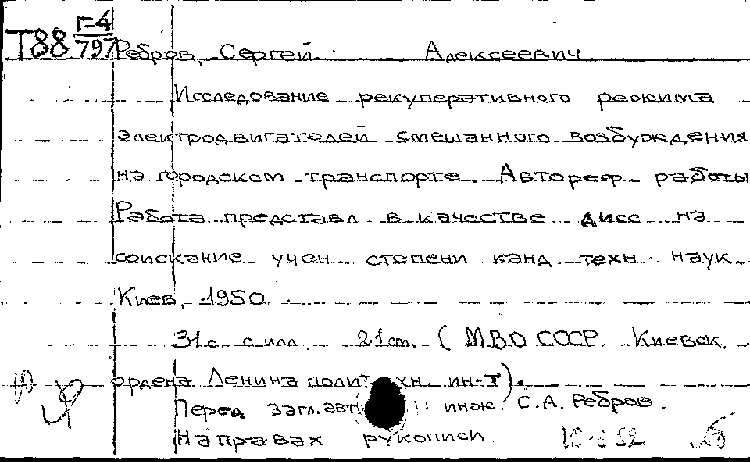 Г-4
Т88 797
Ребров, Сергей Алексеевич
Исследование рекуперативного режима
электродвигателей смешанного возбуждения
на городском транспорте. Автореф. работы
Работа представл. в качестве дисс. на
соискание учен. степени канд. техн. наук
Киев, 1950.
31с. с илл. 21см. (МВО СССР. Киевск.
ордена Ленина полит хн. ин-т).
Перед загл. авт : инж. С.А. Ребров.
На правах рукописи.